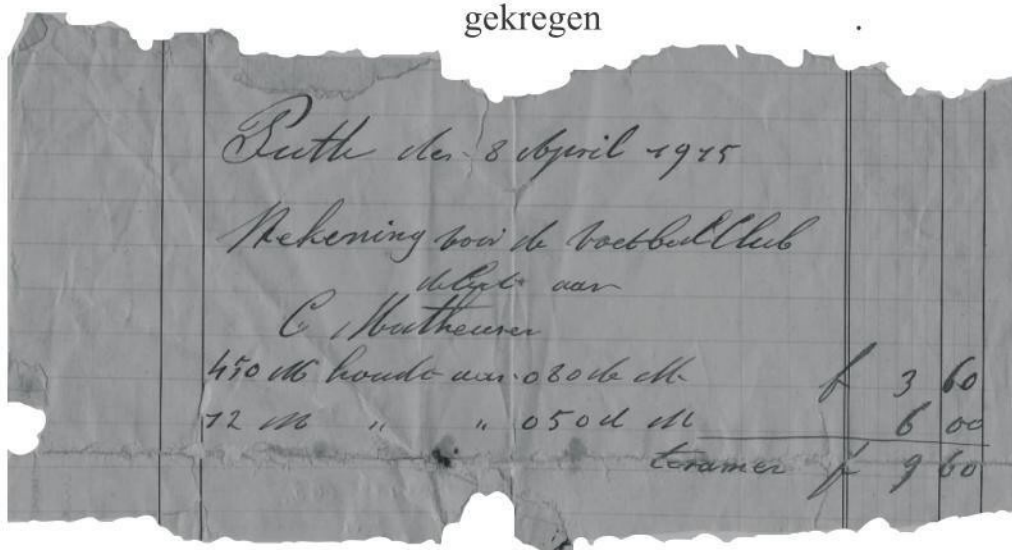 gekregen
Puth den 8 April 1915
Rekening voor de voetbalClub
debet aan
C Mutheuser
450 M houdt aan 0 80 de M f 3 60
12 M " " 0 50 d M 6 00
tesamer f 9 60